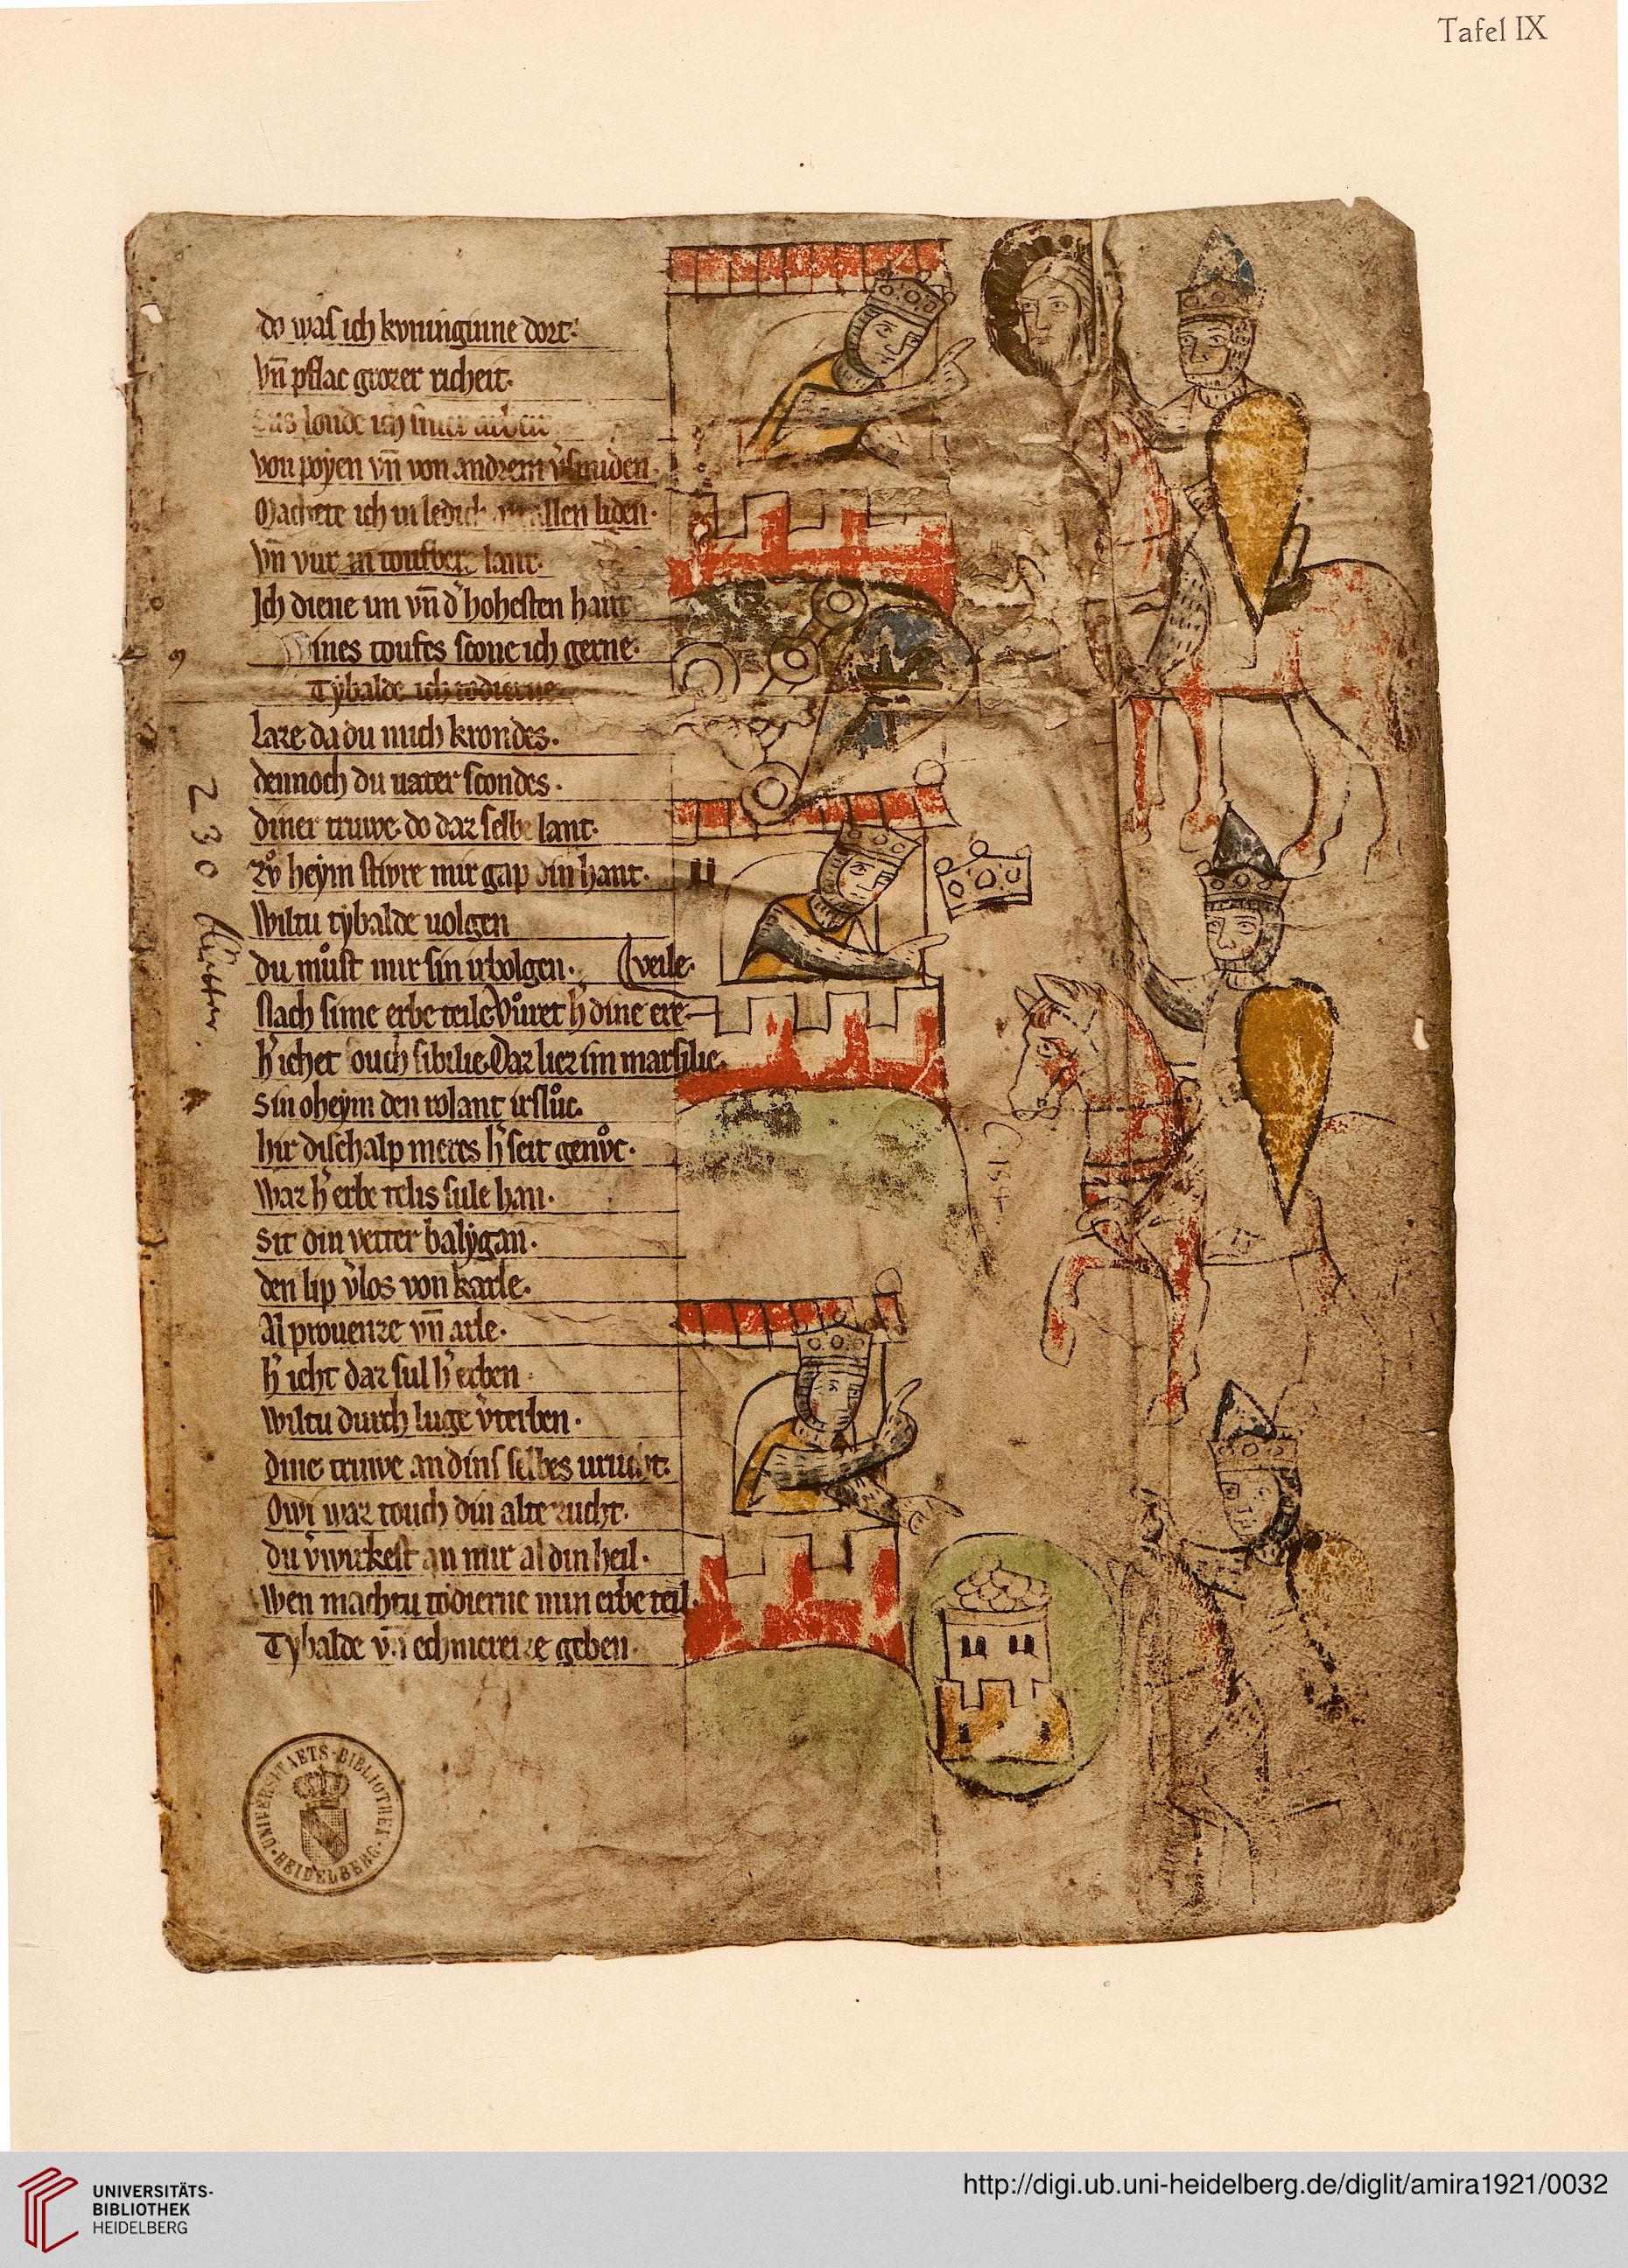 Tafel IX
do was ich kvninginne dort·
vn̄ pflac grozer richeit·
von poyen vn̄ von andrem
Machete ich in allen liden·
vn̄ vur in toufbere lant·
Ich diene im vn̄ d' hohesten hant
ines toufes scone ich gerne·
Tybalde ich
Laze da du mich krondes·
dennoch du uater scondes·
diner truwe· do daz selbe lant·
zů heym stivre mir gap din hant·
Wiltu tybalde uolgen
du můst mir sin irbolgen·
(veile·
Nach sime erbe teile· vůret h' dine ere
h' ichet ouch sibilie· Daz liez im marsilie·
Sin oheym den rolant irslůc·
hir dischalp meres h' seit genůc·
Waz h' erbe teils sule han·
Sit din vetter balygan·
den lip v'los von karle·
Al prouenze vn̄ arle·
h' icht daz sul h' erben·
Wiltu durch luge v'terben·
Dine truwe an dins selbes urucht·
Owi waz touch din alte zucht·
du v'wirkest an mir al din heil·
Wen machtu min erbe teil·
Tybalde vn̄ geben·
230
UNIVERSITAETS-BIBLIOTHEK
HEIDELBERG
UNIVERSITÄTS-
BIBLIOTHEK
HEIDELBERG
http://digi.ub.uni-heidelberg.de/diglit/amira1921/0032